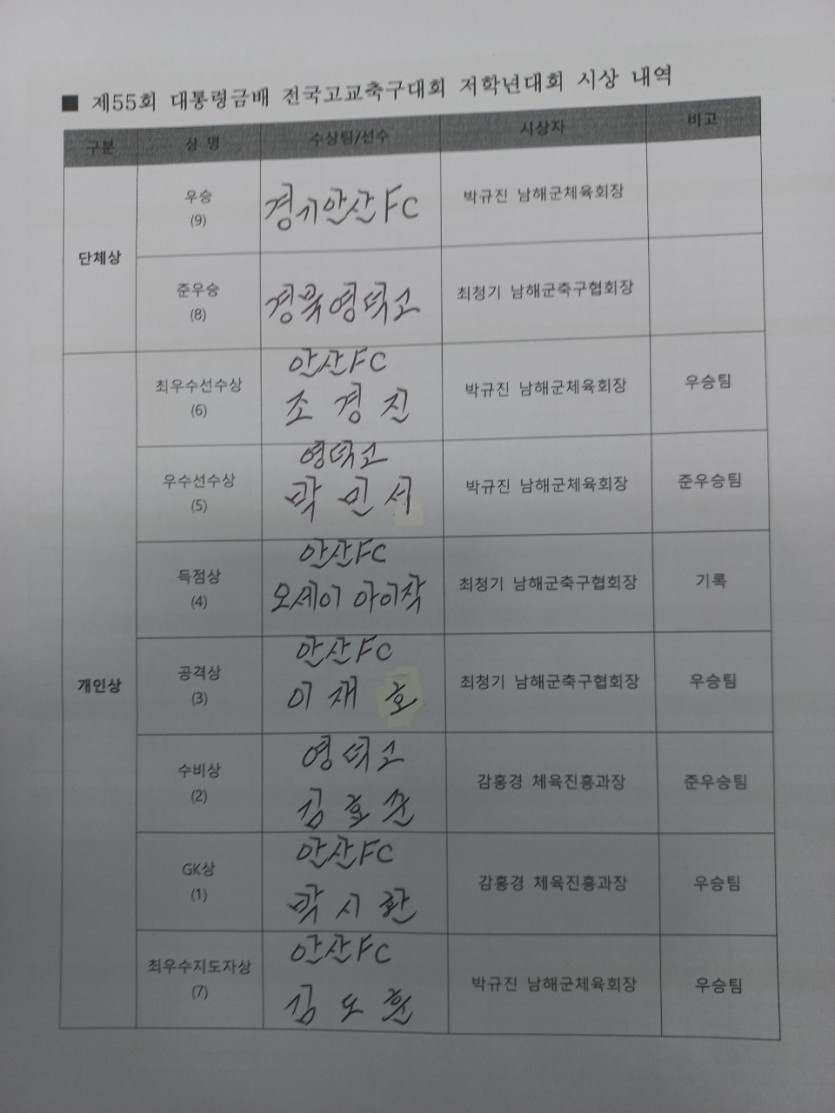 ■ 제55회 대통령금배 전국고교축구대회 저학년대회 시상 내역
구분 상 명 수상팀/선수 시상자 비고
단체상
우승
(9)
경기안산FC
박규진 남해군체육회장
준우승
(8)
경북영덕고
최청기 남해군축구협회장
개인상
최우수선수상
(6)
안산FC
조 경 진
박규진 남해군체육회장
우승팀
우수선수상
(5)
영덕고
박 민 서
박규진 남해군체육회장
준우승팀
득점상
(4)
안산FC
오세이 아이작
최청기 남해군축구협회장
기록
공격상
(3)
안산FC
이 재 호
최청기 남해군축구협회장
우승팀
수비상
(2)
영덕고
김 효 준
감홍경 체육진흥과장
준우승팀
GK상
(1)
안산FC
박 시 환
감홍경 체육진흥과장
우승팀
최우수지도자상
(7)
안산FC
김 도 훈
박규진 남해군체육회장
우승팀